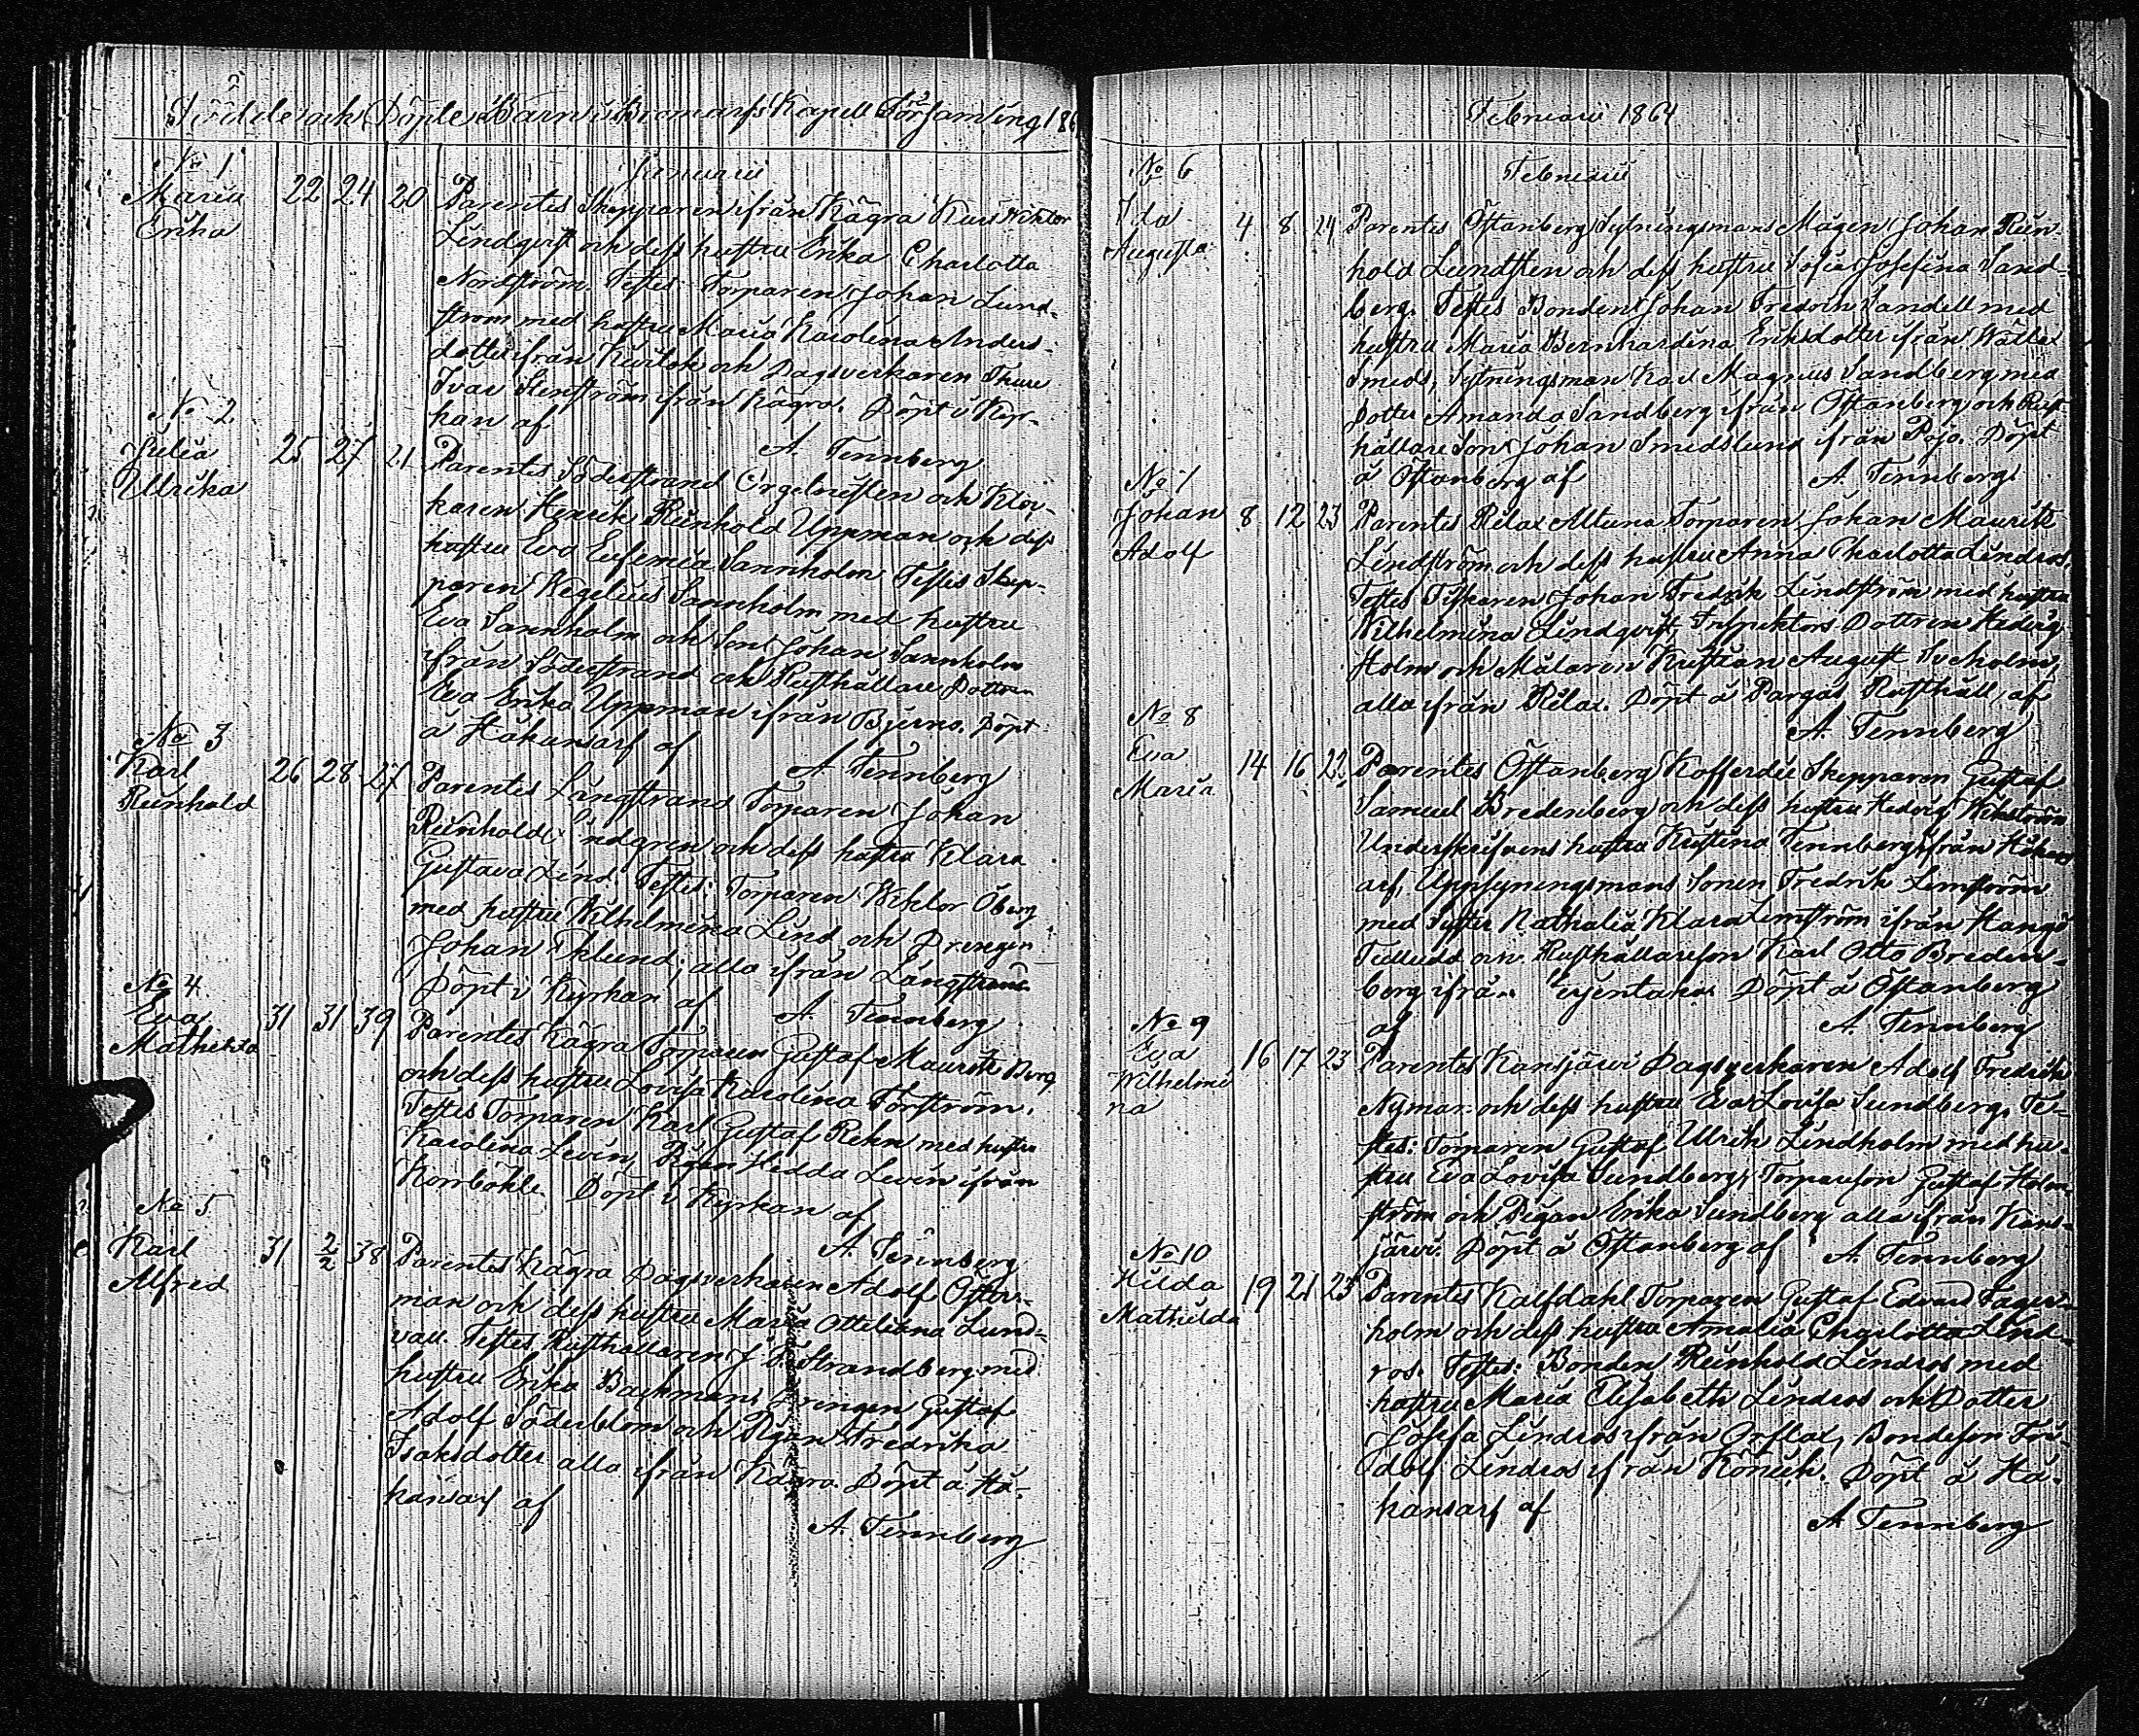 Födde och Döpte Barn i Bromarfs Kapell Församling 186
Januarii
No 1
Maria 22 24 20 Parentes Skepparen ifrån Kägra Karl Wiktor
Erika Lindqvist och dess hustru Erika Charlotta
Nordström. Testes Torparen Johan Lund-
ström med hustru Maria Karolina Anders-
dotter ifrån och Dagsverkaren Thure
Ivar Stenström ifrån Kägra. Döpt i Kyr-
kan af
A. Tennberg
No 2
Julia 25 27 21 Parentes Söderstrand Orgelnisten och Kloc-
Ullrika karen Henrik Reinhold Uppman och dess
hustru Eva Eufemia Sannholm Testes Skep-
paren Wegelius Sannholm med hustru
Eva Sannholm och Son Johan Sannholm
ifrån Söderstrand och Rusthållare Dottren
Eva Erika Uppman ifrån Bjerno. Döpt
å Håkansarf af
A. Tennberg
No 3
Karl 26 28 27 Parentes Långstrand Torparen Johan
Reinhold Reinhold Lindgren och dess hustru Klara
Gustava Lind. Testes: Torparen Wiktor Öberg
med hustru Wilhelmina Lind och Drengen
Johan Eklund; alla ifrån Långstrand
Döpt i Kyrkan af
A. Tennberg
No 4
Eva 31 31 39 Parentes Kägra Torparen Gustaf Mauritz Berg
Mathilda och dess hustru Lovisa Karolina Forström.
Testes Torparen Karl Gustaf Rehn med hustru
Karolina Levin, Pigan Hedda Levin ifrån
Korrböhle. Döpt i Kyrkan af
A. Tennberg
No 5
Karl 31 2/2 38 Parentes Kägra Dagsverkaren Adolf Öster-
Alfred man och dess hustru Maria Ottiliana Lund-
vall. Testes Rusthållaren J F Strandberg med
hustru Erika Backman, Drengen Gustaf
Adolf Söderblom och Pigan Fredrika
Isaksdotter alla ifrån Kägra. Döpt å Hå-
kansarf af
A. Tennberg
Februarii 1864
Februarii
No 6
Ida 4 8 24 Parentes Östanberg Sytningsmans Mågen Johan Rein-
Augusta hold Lundsten och dess hustru Sofia Josefina Sand-
berg. Testes Bonden Johan Fredrik Sandell med
hustru Maria Bernhardina Eriksdotter ifrån
Smeds, Sytningsman Karl Magnus Sandberg med
Dotter Amanda Sandberg ifrån Östanberg och Rust-
hållare Son Johan Smedslund ifrån Pojo. Döpt
å Östanberg af A. Tennberg
No 7
Johan 8 12 23 Parentes Rilax Torparen Johan Mauritz
Adolf Lindström och dess hustru Anna Charlotta Lindros.
Testes Fiskaren Johan Fredrik Lindström med hustru
Wilhelmina Lindqvist, Inspektors Dottren Hedvig
Holm och Målaren Kristian August Sveholm,
alla ifrån Rilax. Döpt å Pargas Rusthåll af
A. Tennberg
No 8
Eva 14 16 22 Parentes Östanberg Kofferdie Skepparen Gustaf
Maria Samuel Bredenberg och dess hustru Hedvig Wikström
Underskrifvens hustru Kristina Tennberg ifrån Håkans-
arf, Uppsyningsmans Sonen Fredrik Lemström
med Syster Nathalia Klara Lemström ifrån Hangö
Tulludd och Rusthållareson Karl Otto Breden-
berg ifrån Döpt å Östanberg
af A. Tennberg
No 9
Eva 16 17 23 Parentes Kansjärvi Dagsverkaren Adolf Fredrik
Wilhelmi Nyman och dess hustru Eva Lovisa Sundberg. Te-
na stes: Torparen Gustaf Ulrik Lindholm med hu-
stru Eva Lovisa Sundberg, Torpareson Gustaf Holm-
ström och Pigan Erika Sundberg alla ifrån Kans-
järvi. Döpt å Östanberg af A. Tennberg
No 10
Hilda 19 21 23 Parentes Kalfdahl Torparen Gustaf Edvard Fager-
Mathilda holm och dess hustru Amalia Charlotta Lind-
ros. Testes: Bonden Reinhold Lindros med
hustru Maria Elisabeth Lindros och Dotter
Josefa Lindros ifrån Orslax, Bondeson
Lindros ifrån Döpt å Hå-
kansarf af A Tennberg